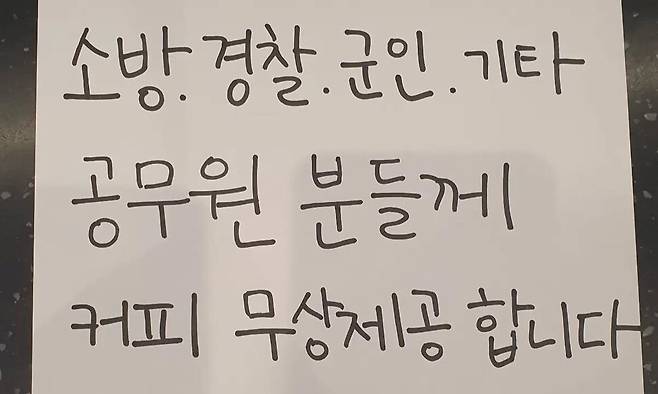 소방.경찰.군인.기타
공무원 분들께
커피 무상제공 합니다